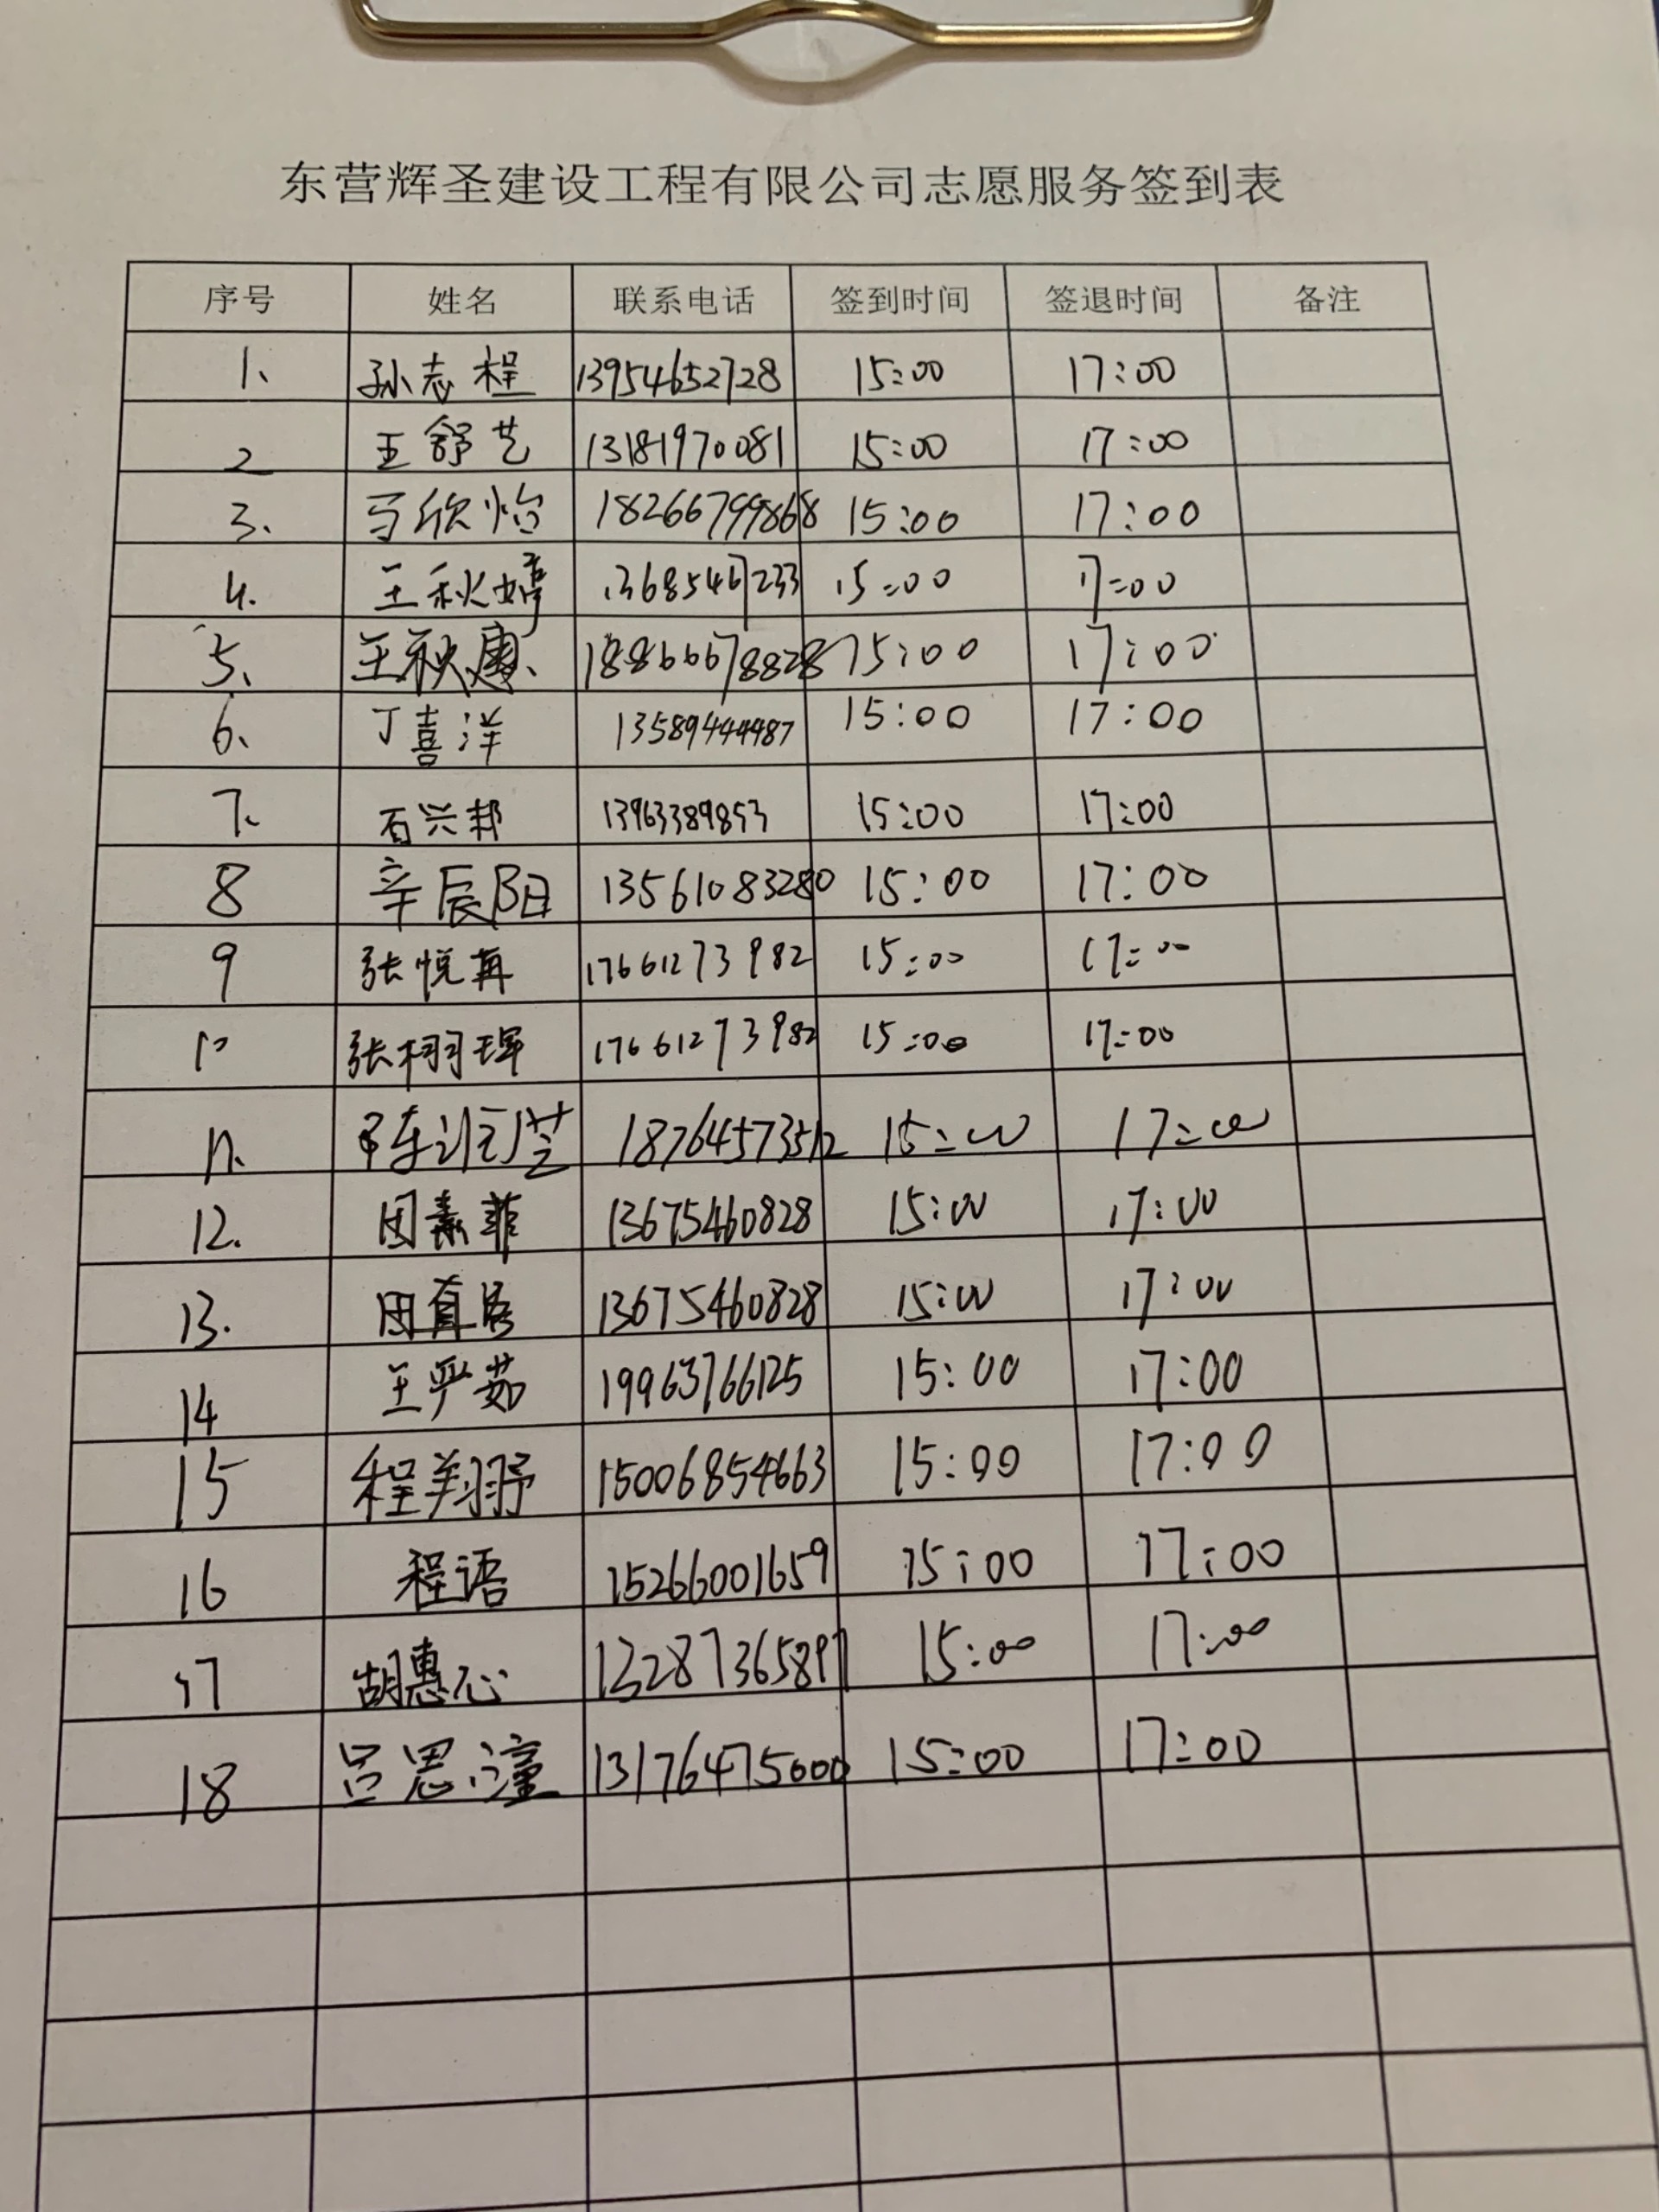 东营辉圣建设工程有限公司志愿服务签到表
序号 姓名 联系电话 签到时间 签退时间 备注
1、 孙志程 13954652728 15:00 17:00
2 王舒艺 13181970081 15:00 17:00
3、 马欣怡 18266799868 15:00 17:00
4. 王秋婷 13685467233 15:00 17:00
5、 王秋惠 18866678828 15:00 17:00
6、 丁喜洋 13589444487 15:00 17:00
7、 石兴邦 13963389853 15:00 17:00
8 辛辰阳 13561083280 15:00 17:00
9 张悦冉 17661273982 15:00 17:00
10 张栩珲 17661273982 15:00 17:00
11. 18764573512 15:00 17:00
12. 田素菲 13675460828 15:00 17:00
13. 13675460828 15:00 17:00
14 王严茹 19963766125 15:00 17:00
15 程翔舒 15006854663 15:00 17:00
16 程语 15266001659 15:00 17:00
17 胡惠心 13287365897 15:00 17:00
18 吕思潼 13176475600 15:00 17:00